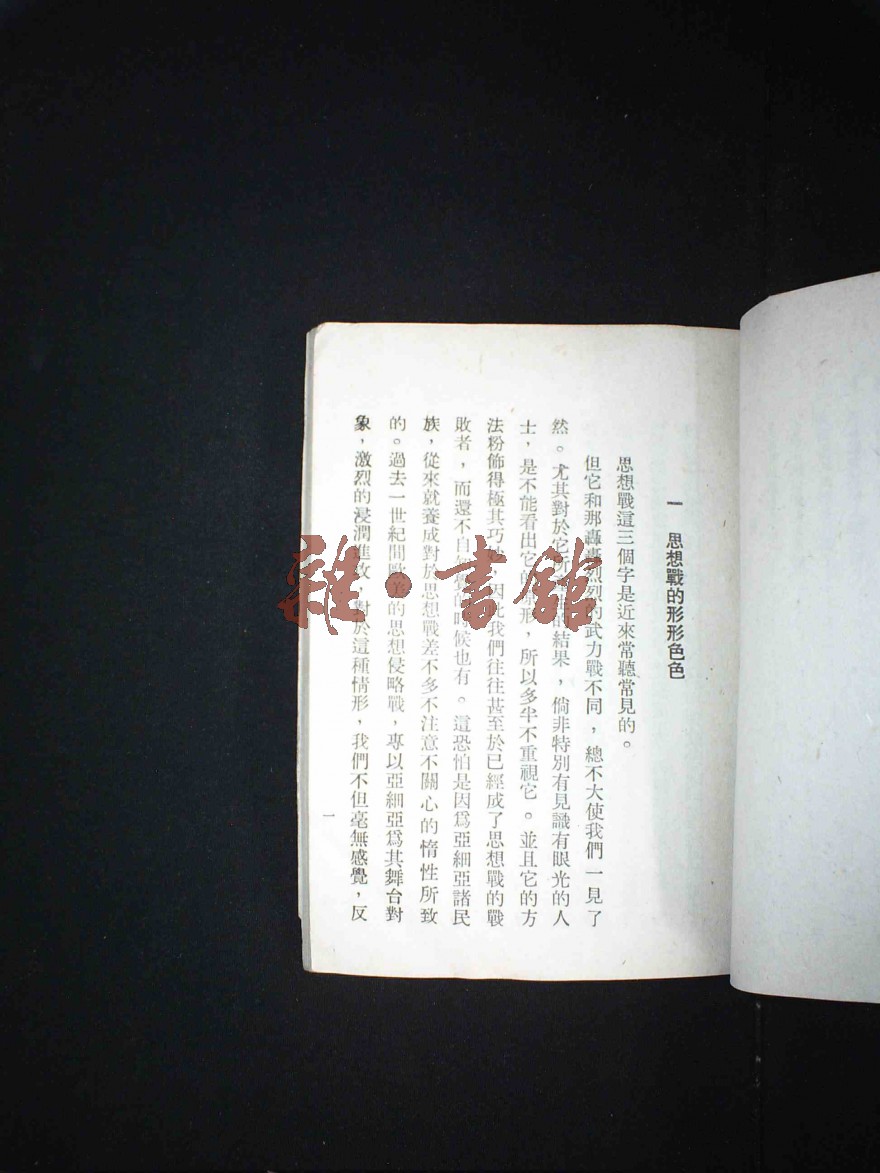 一 思想戰的形形色色
思想戰這三個字是近來常聽常見的。
但它和那轟轟烈烈的武力戰不同，總不大使我們一見了
然。尤其對於它所 結果，倘非特別有見識有眼光的人
士，是不能看出它的 形，所以多半不重視它。並且它的方
法粉飾得極其巧 ，因此我們往往甚至於已經成了思想戰的戰
敗者，而還不自 的時候也有。這恐怕是因爲亞細亞諸民
族，從來就養成對於思想戰差不多不注意不關心的惰性所致
的。過去一世紀間歐美的思想侵略戰，專以亞細亞爲其舞台對
象，激烈的浸潤進攻，對於這種情形，我們不但毫無感覺，反
一
雜·書館